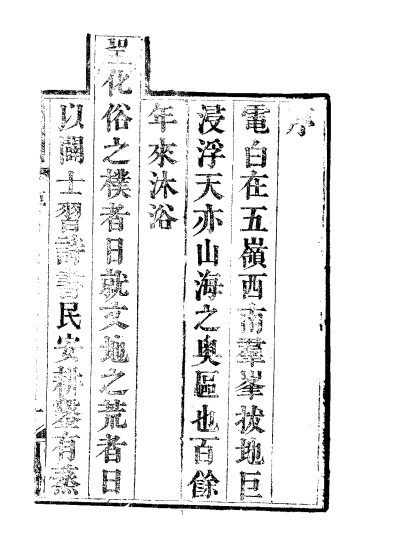 序
電白在五嶺西南羣峯拔地巨
浸浮天亦山海之奥區也百餘
年來沐浴
聖化俗之樸者日就文地之荒者日
以闢士習詩書民安耕鑿有蒸